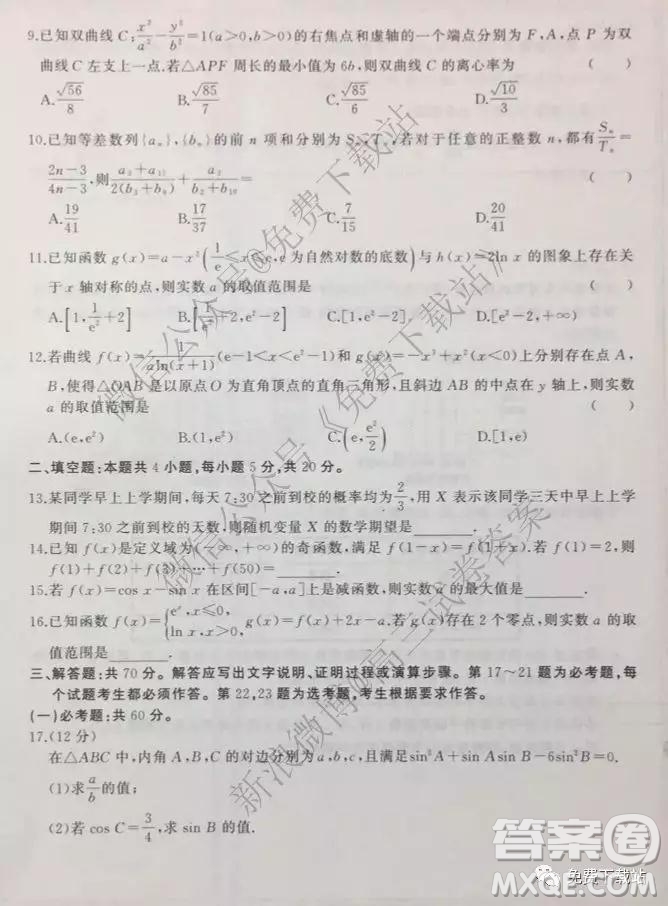 9.已知双曲线 C:x²/a²-y²/b²=1(a>0,b>0)的右焦点和虚轴的一个端点分别为 F,A,点 P 为双
曲线 C 左支上一点.若△APF 周长的最小值为 6b,则双曲线 C 的离心率为 ( )
A.√56/8 B.√85/7 C.√85/6 D.√10/3
10.已知等差数列{aₙ},{bₙ}的前 n 项和分别为 Sₙ,Tₙ,若对于任意的正整数 n,都有Sₙ/Tₙ=
(2n-3)/(4n-3),则(a₃+a₁₅)/(2(b₃+b₉))+a₃/(b₂+b₁₀) ( )
A.19/41 B.17/37 C.7/15 D.20/41
11.已知函数 g(x)=a-x²(1/e≤x≤e,e 为自然对数的底数)与 h(x)=2ln x 的图象上存在关
于 x 轴对称的点,则实数 a 的取值范围是 ( )
A.[1,1/e²+2] B.[1/e²+2,e²-2] C.[1,e²-2] D.[e²-2,+∞)
12.若曲线 f(x)=1/(aln(x+1))(e-1<x<e²-1)和 g(x)=-x³+x²(x<0)上分别存在点 A,
B,使得△OAB 是以原点O 为直角顶点的直角三角形,且斜边 AB 的中点在 y 轴上,则实数
a 的取值范围是 ( )
A.(e,e²) B.(1,e²) C.(e,e²/2) D.[1,e)
二、填空题:本题共 4 小题,每小题 5 分,共 20 分.
13.某同学早上上学期间,每天 7:30 之前到校的概率均为2/3,用 X 表示该同学三天中早上上学
期间 7:30 之前到校的天数,则随机变量 X 的数学期望是______.
14.已知 f(x)是定义域为(-∞,+∞)的奇函数,满足 f(1-x)=f(1+x).若 f(1)=2,则
f(1)+f(2)+f(3)+…+f(50)=______.
15.若 f(x)=cos x-sin x 在区间[-a,a]上是减函数,则实数 a 的最大值是______.
16.已知函数 f(x)={eˣ,x≤0, ln x,x>0, g(x)=f(x)+2x-a.若 g(x)存在 2 个零点,则实数 a 的取
值范围是______.
三、解答题:共 70 分. 解答应写出文字说明、证明过程或演算步骤. 第 17~21 题为必考题,每
个试题考生都必须作答. 第 22,23 题为选考题,考生根据要求作答.
(一)必考题:共 60 分.
17.(12 分)
在△ABC 中,内角 A,B,C 的对边分别为 a,b,c,且满足sin²A+sin Asin B-6sin²B=0.
(1)求a/b的值;
(2)若 cos C=3/4,求 sin B 的值.
微信公众号@免费下载站
微信公众号《免费下载站》
新浪微博@高三试卷答案
答案卷
MXQE.COM
免费下载站